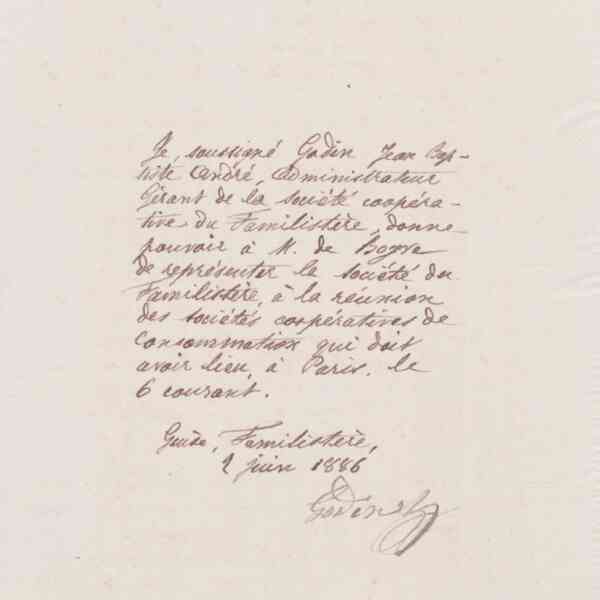 Je, soussigné Godin Jean Bap-
tiste André, administrateur
Gérant de la société coopéra-
tive du Familistère, donne
pouvoir à M. de Boyve
de représenter la société du
Familistère, à la réunion
des sociétés coopératives de
Consommation qui doit
avoir lieu, à Paris. le
6 courant.
Guise, Familistère,
2 juin 1886
Godin